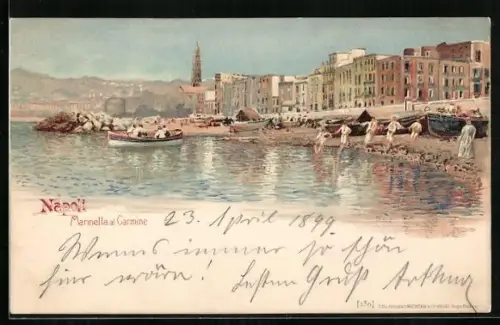 Napoli
Marinella al Carmine
23. April 1899
Wenns immer so schön
hier wäre! Besten Gruß Arthur